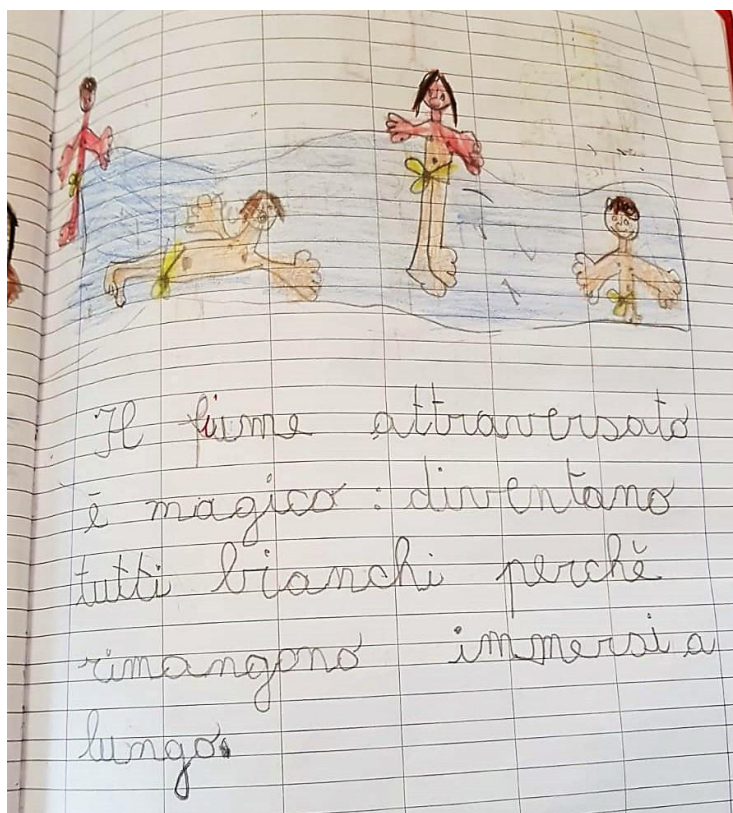 Il fiume attraversato
è magico: diventano
tutti bianchi perchè
rimangono immersi a
lungo.